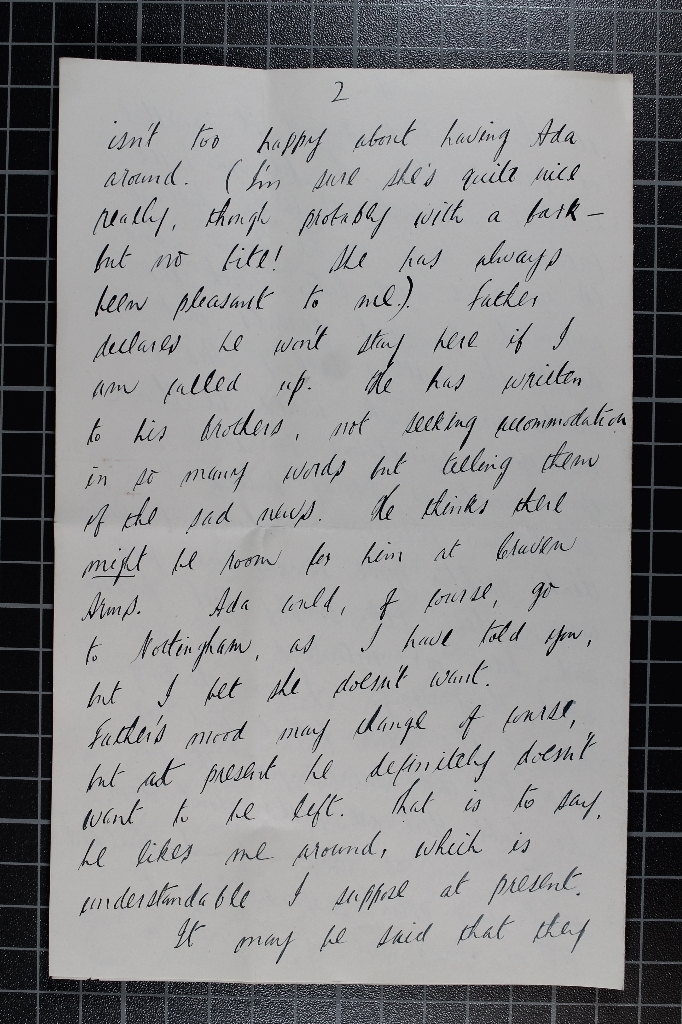 2
isn't too happy about having Ada
around. (I'm sure she's quite nice
really, though probably with a bark –
but no bite! She has always
been pleasant to me.). Father
declares he won't stay here if I
am called up. He has written
to his brothers, not seeking accommodation
in so many words but telling them
of the sad news. He thinks there
might be room for him at Craven
Arms. Ada could, of course, go
to Nottingham, as I have told you,
but I bet she doesn't want.
Father's mood may change of course,
but at present he definitely doesn't
want to be left. That is to say,
he likes me around, which is
understandable I suppose at present.
It may be said that they